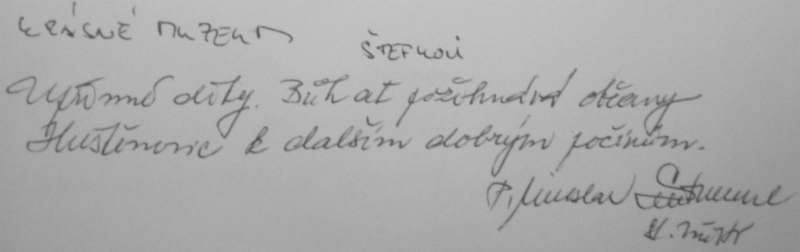 KRÁSNÉ MUZEUM
ŠTEFKOVI
Upřímné díky. Bůh ať požehnává občany
Huštěnovic k dalším dobrým počinům.
P. Miroslav